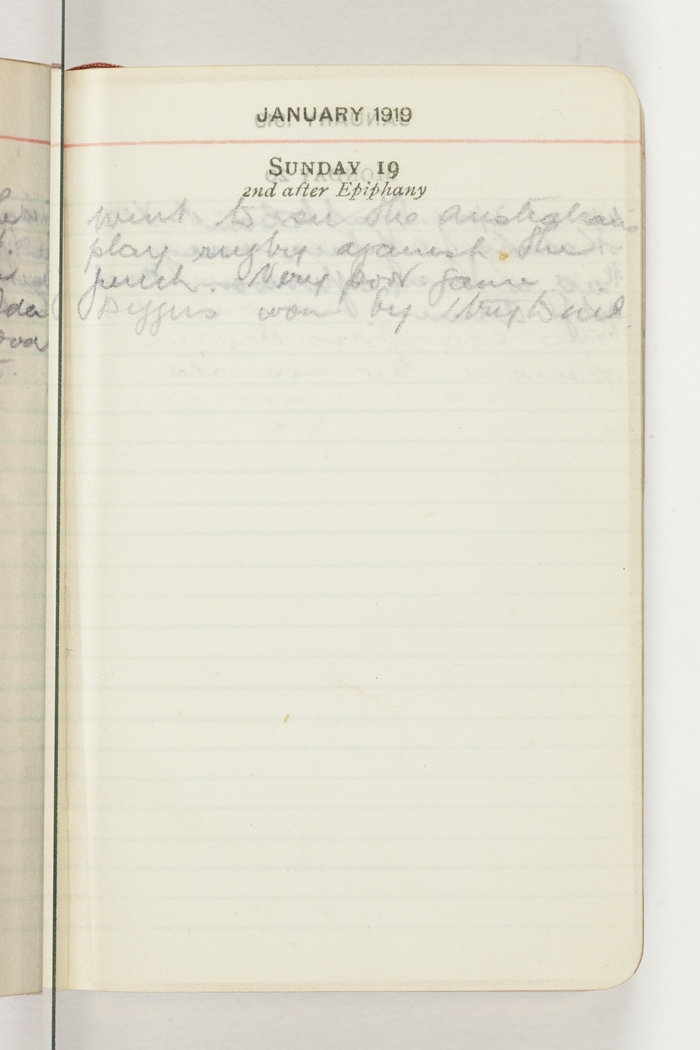 JANUARY 1919
SUNDAY 19
2nd after Epiphany
went to see the Australians
play rugby against the
french. Very poor game
Diggers won by